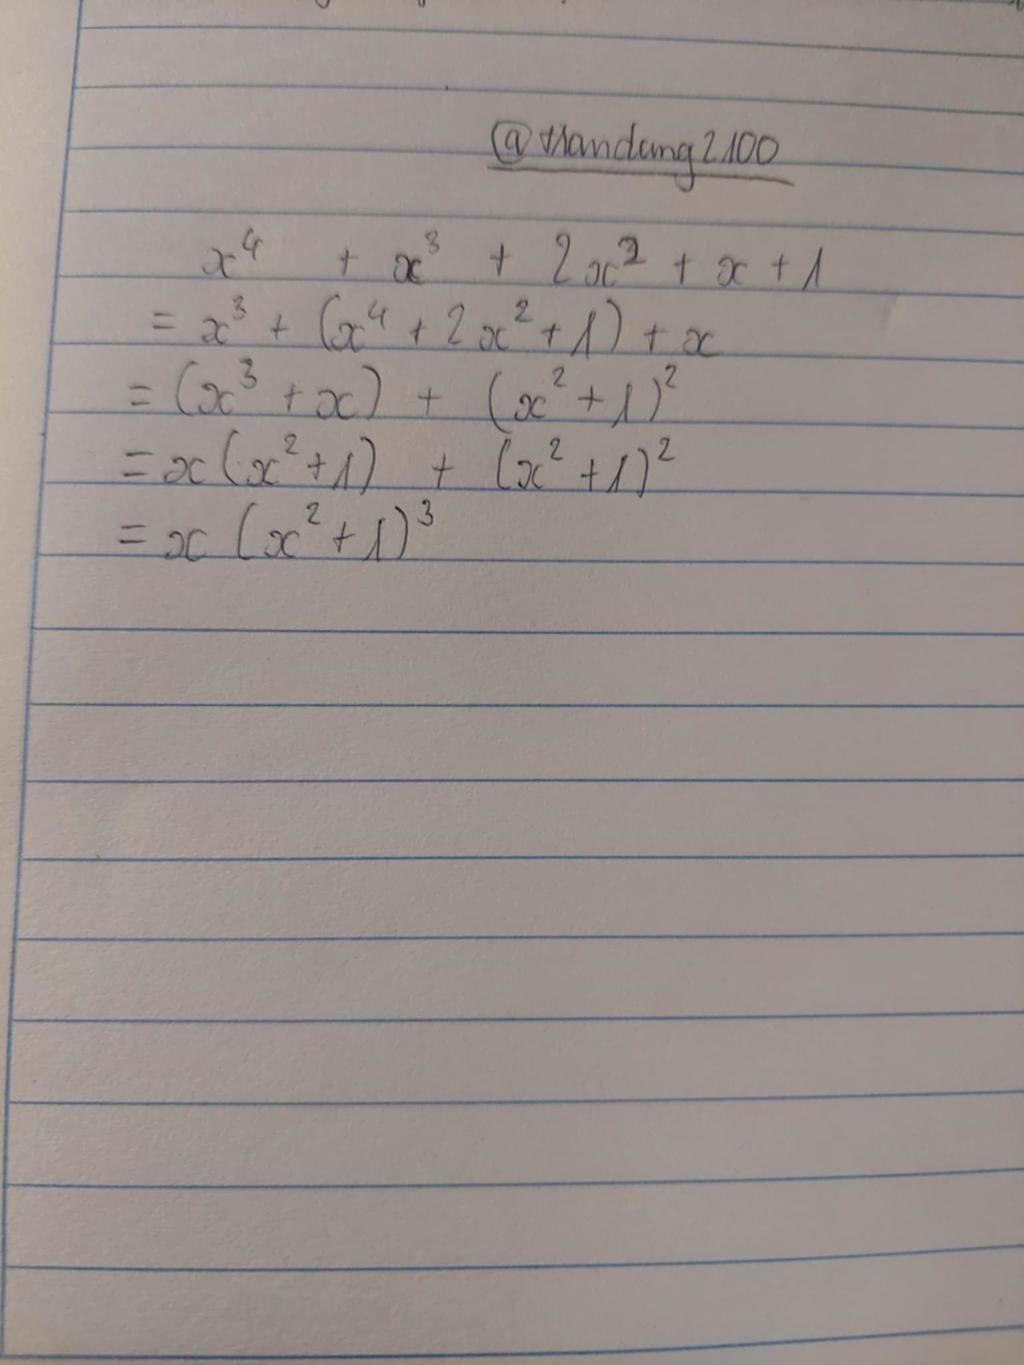 @Handung2100
x⁴ + x³ + 2x² + x + 1
= x³ + (x⁴ + 2x² + 1) + x
= (x³ + x) + (x² + 1)²
= x(x² + 1) + (x² + 1)²
= x (x² + 1)³